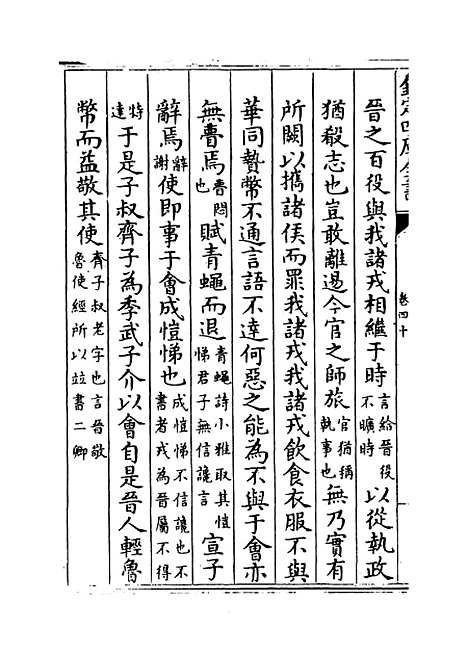 欽定四庫全書
卷四十
晉之百役與我諸戎相繼于時言給晉役不曠時以從執政
猶殽志也豈敢離逷今官之師旅官猶稱執事也無乃實有
所闕以攜諸侯而罪我諸戎我諸戎飲食衣服不與
華同贄幣不通言語不逹何惡之能為不與于會亦
無瞢焉瞢悶也賦青蠅而退青蠅詩小雅取其愷悌君子無信讒言宣子
辭焉辭謝使即事于會成愷悌也成愷悌不信讒也不書者戎為晉屬不得
特達于是子叔齊子為季武子介以會自是晉人輕魯
幣而益敬其使齊子叔老字也言晉敬魯使經所以竝書二卿